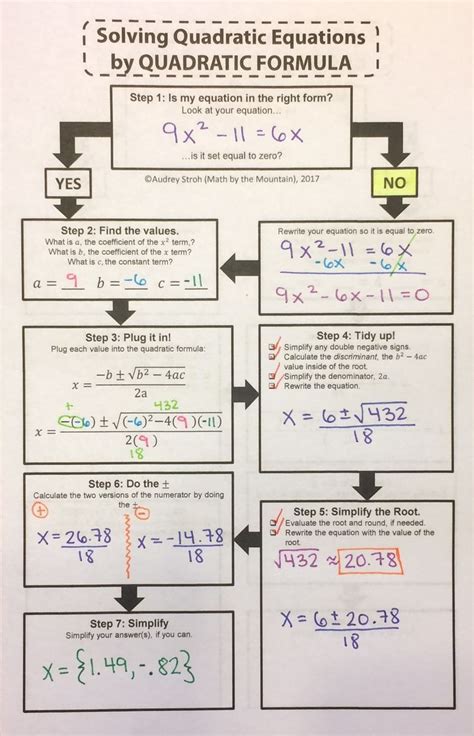 Solving Quadratic Equations
by QUADRATIC FORMULA
Step 1: Is my equation in the right form?
Look at your equation...
9x² - 11 = 6x
...is it set equal to zero?
YES
©Audrey Stroh (Math by the Mountain), 2017
NO
Step 2: Find the values.
What is a, the coefficient of the x² term,?
What is b, the coefficient of the x term?
What is c, the constant term?
a = 9 b = -6 c = -11
Rewrite your equation so it is equal to zero.
9x² - 11 = 6x
-6x -6x
9x² - 6x - 11 = 0
Step 3: Plug it in!
Plug each value into the quadratic formula:
x = −b ± √b² − 4ac
2a
+ 432
x = -(-6) ± √(-6)² - 4(9)(-11)
2(9)
18
Step 4: Tidy up!
Simplify any double negative signs.
Calculate the discriminant, the b² − 4ac
value inside of the root.
Simplify the denominator, 2a.
Rewrite the equation.
x = 6 ± √432
18
Step 5: Simplify the Root.
Evaluate the root and round, if needed.
Rewrite the equation with the value of the
root.
√432 ≈ 20.78
x = 6 ± 20.78
18
Step 6: Do the ±
Calculate the two versions of the numerator by doing
the ±.
+ -
x = 26.78 x = -14.78
18 18
Step 7: Simplify
Simplify your answer(s), if you can.
x = {1.49, -.82}